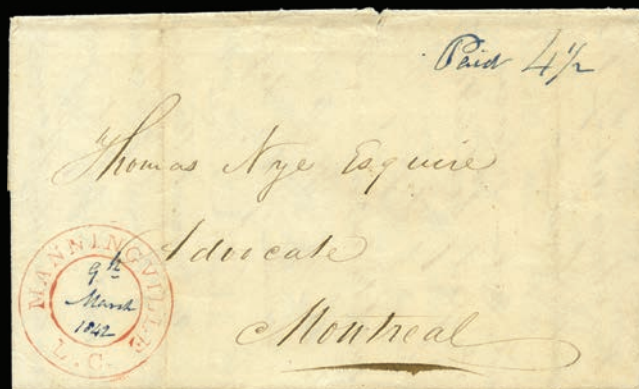 Paid 4½
Thomas Nye Esquire
Advocate
Montreal
MANNINGVILLE
9th
March
1842
L.C.